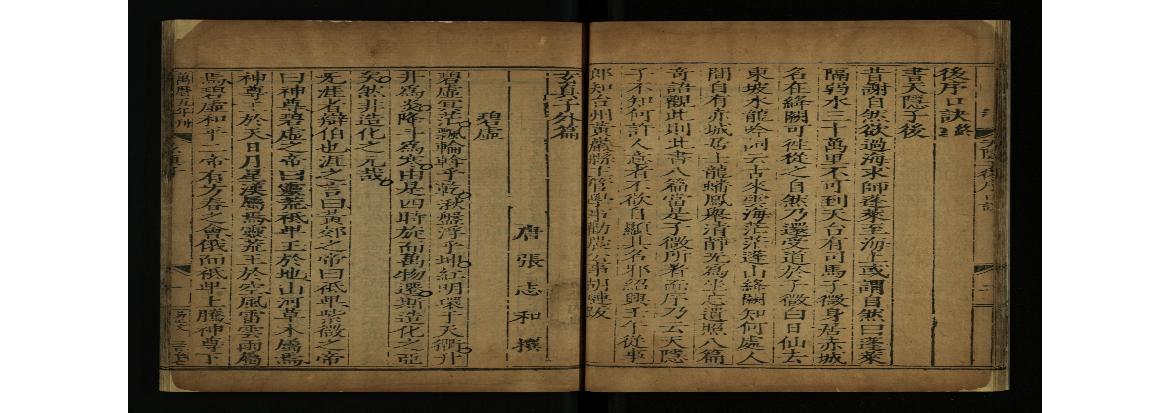 後序口訣終
書天隱子後
昔謝自然欲過海求師蓬萊至海上或謂自然曰蓬萊
隔弱水三十萬里不可到天台有司馬子微身居赤城
名在絳闕可往從之自然乃還受道於子微白日仙去
東坡水龍吟詞云古來雲海茫茫蓬山絳闕知何處人
間自有赤城居士龍蟠鳳舉清靜無為坐忘遺照八篇
奇語觀此則此書八篇當是子微所著而序乃云天隱
子不知何許人意者不欲自顯其名邪紹興壬午從事
郎知台州黃巖縣主管學事勸農公事胡璉跋
玄真子外篇
唐張志和撰
碧虛
碧虛冥茫飄輪斡乎乾秋盤浮乎坤紅明環于天衢升
升為炎降于為寒由是四時旋而萬物遷斯造化之亞
矣然非造化之元哉
無涯者辯伯也涯之言曰黃郊之帝曰祇卑紫微之帝
曰神尊碧虛之帝曰靈荒祇卑王於地山河草木屬焉
神尊王於天日月星漢屬焉靈荒王於空風雷雲雨屬
焉碧虛和乎二帝有方春之會俄而祇卑上騰神尊下
萬曆五年刊